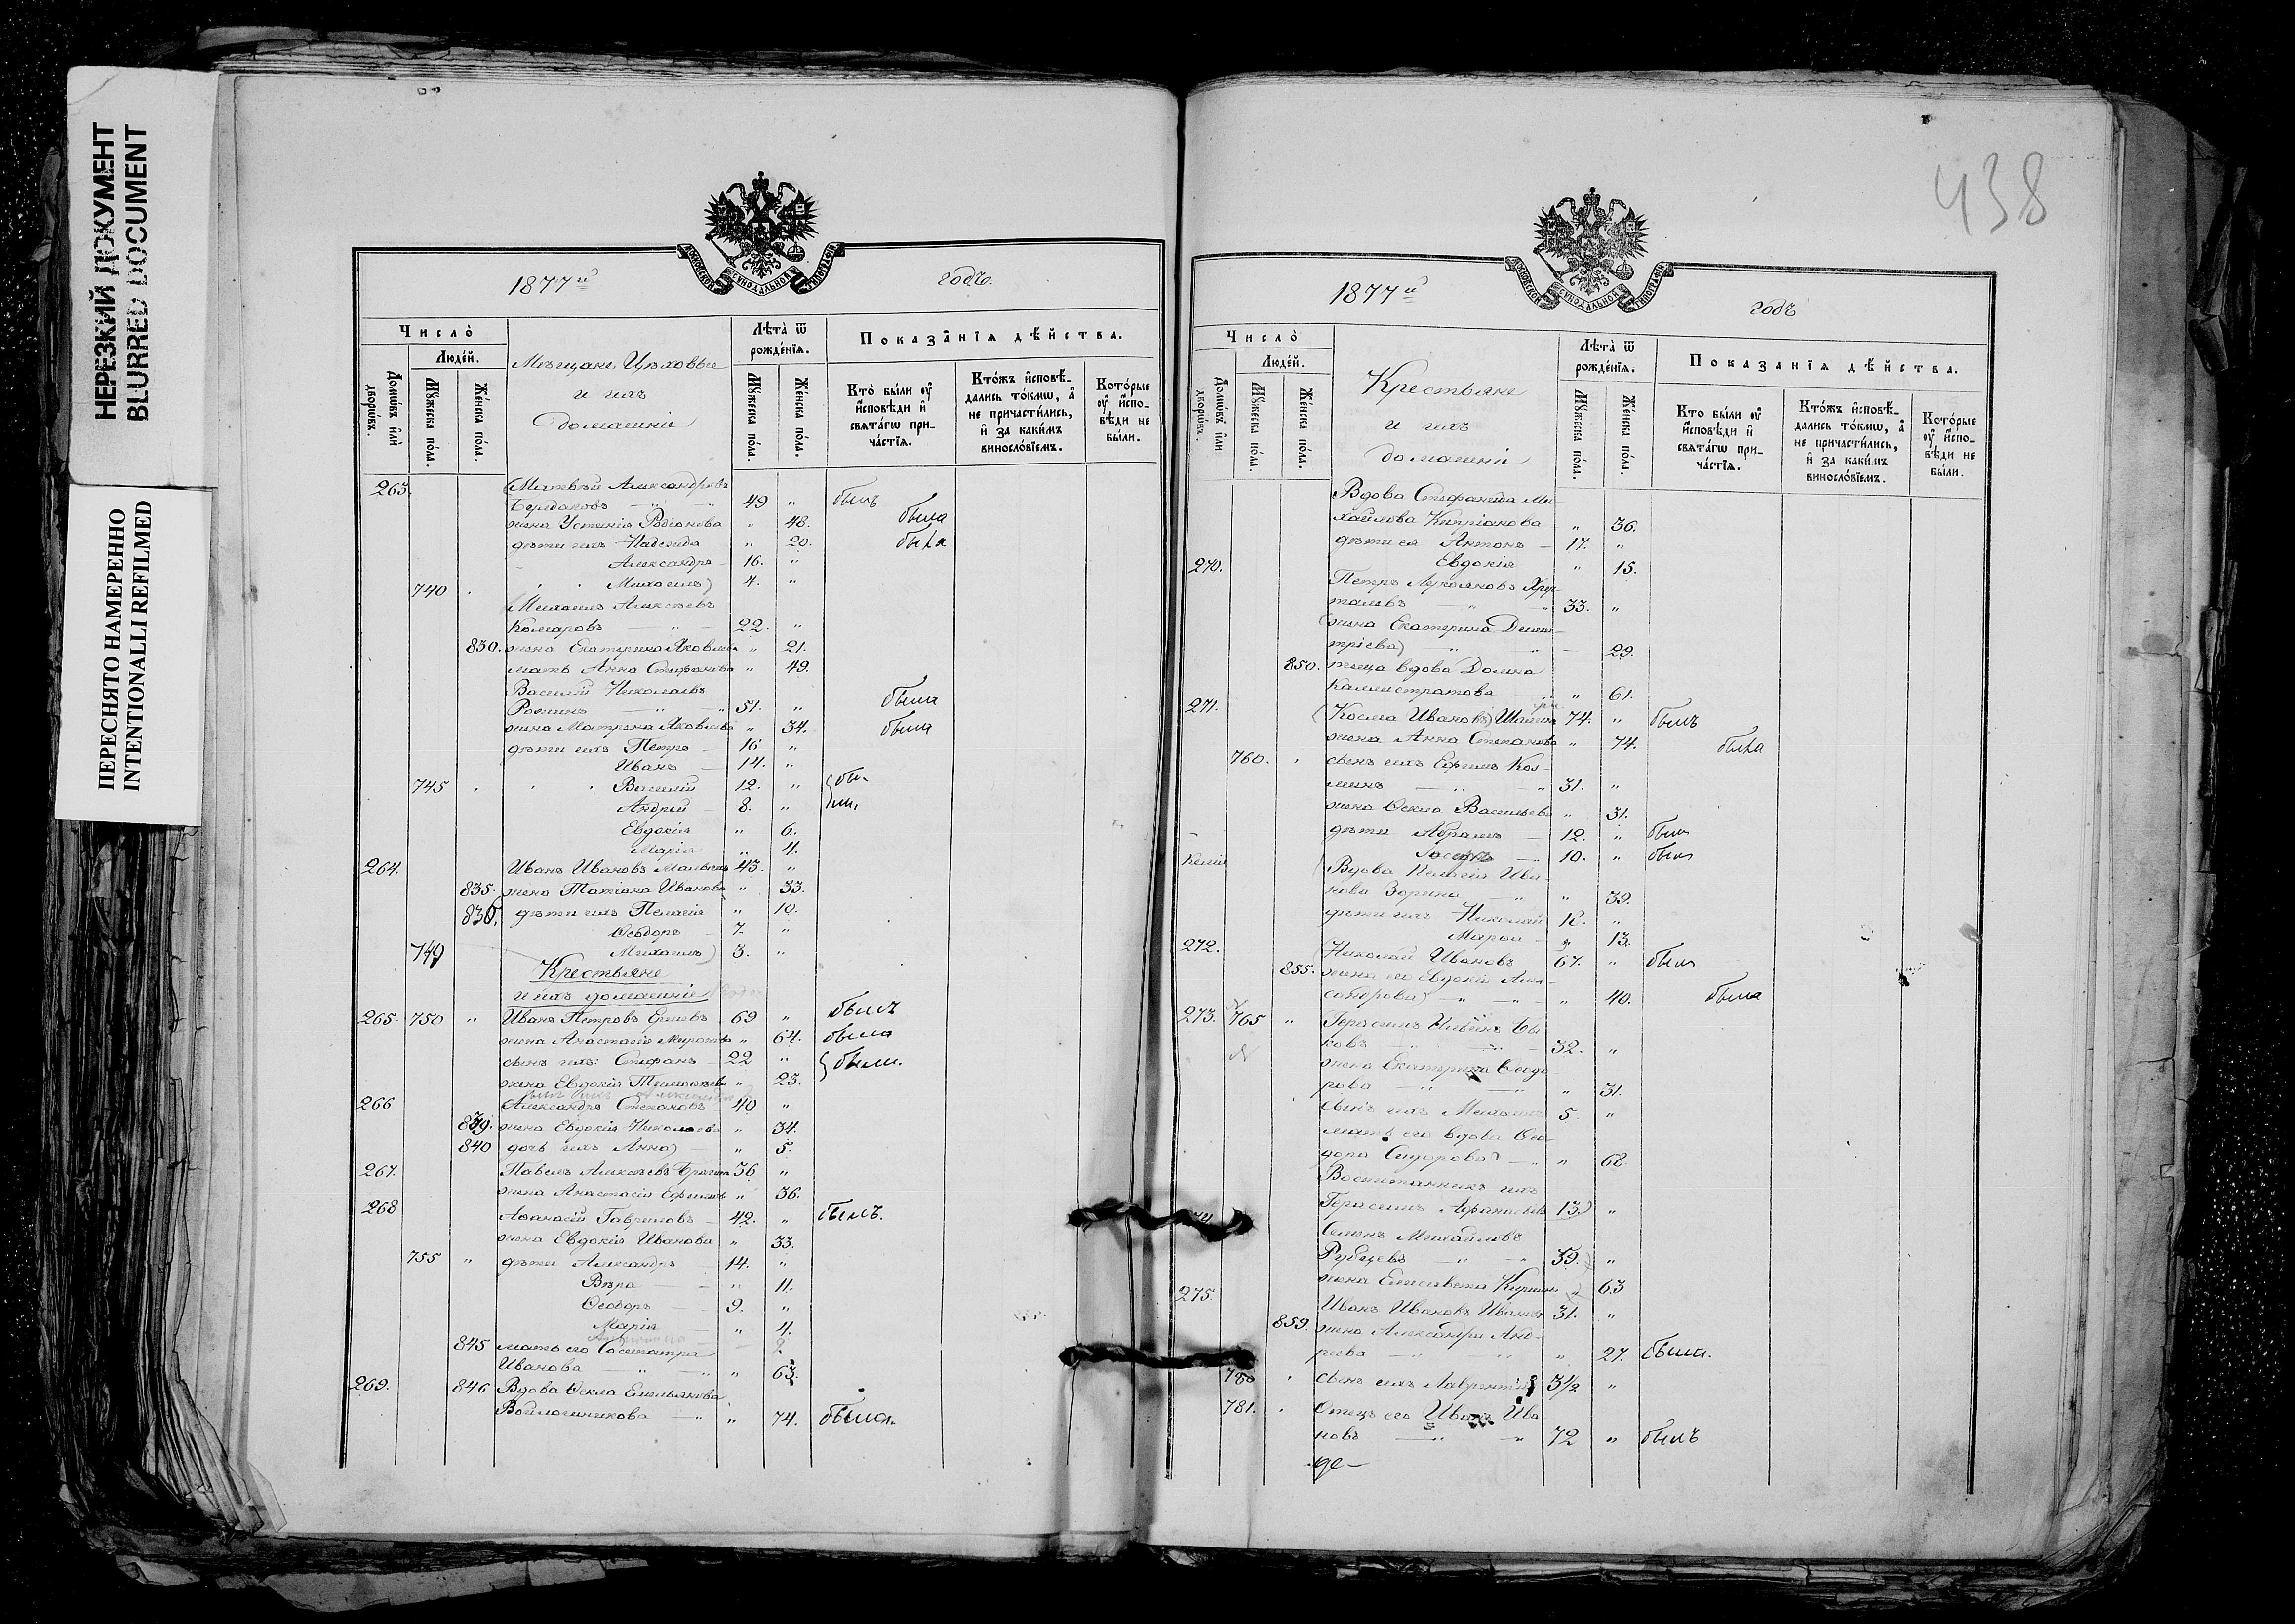 НЕРЕЗКИЙ ДОКУМЕНТ
BLURRED DOCUMENT
ПЕРЕСНЯТО НАМЕРЕННО
INTENTIONALLI REFILMED
438
МОСКОВСКОЙ СѴНОДАЛЬНОЙ ТИПОГРАФІИ
1877й годъ.
Число̀
Люде́й.
Домѡ́въ и҆лѝ дворѡ́въ.
Мꙋ́жеска по́ла.
Же́нска по́ла.
Мѣщане, Цѣховые
и ихъ
домашніе
Лѣ́та ѿ рожде́нїѧ.
Мꙋ́жеска по́ла.
Же́нска по́ла.
Показа̑нїѧ дѣ́йства.
Кто̀ бы́ли ᲂу҆ и҆сповѣди и҆ свѧта́гѡ при-ча́стїѧ.
Кто́жъ и҆сповѣ́-дались то́кмѡ, а҆ не причасти́лись, и҆ за каки́мъ винослѡ́вїемъ.
Кото́рые ᲂу҆ и҆спо-вѣди не бы́ли.
263. Матвѣй Александровъ
Бурдаковъ 49 " былъ
жена Устинія Родіонова " 48. была
дѣти ихъ Надежда " 20. была
Александръ 16. "
740 Михаилъ 4. "
Михаилъ Алексѣевъ
Комаровъ 22. "
830. жена Екатерина Яковлева " 21.
мать Анна Стефанова " 49.
Василій Николаевъ
51. " была
жена Матрона Яковлева " 34. была
дѣти ихъ Петръ 16 "
Иванъ 14. "
745 Василій 12. " бы-
Андрей 8. " ли.
Евдокія " 6.
Марія " 4.
264. Иванъ Ивановъ 43. "
835. жена Татіана Иванова " 33.
836. дѣти ихъ Пелагія " 10.
Ѳеодоръ 7. "
749 Михаилъ 3. "
Крестьяне
и ихъ домашніе
265. 750 " Иванъ Петровъ Ершовъ 69 " былъ
жена Анастасія " 64. была
сынъ ихъ: Стефанъ 22 " были.
жена Евдокія " 23.
266 Александръ Степановъ 40 "
839. жена Евдокія Николаева " 34.
840 дочь ихъ Анна " 5.
267. Павелъ Алексѣевъ 36 "
жена Анастасія Ефимова " 36.
268 Аѳанасій Гавриловъ 42. " былъ.
жена Евдокія Иванова " 33.
755 " дѣти Александръ 14. "
Вѣра " 11.
Ѳеодоръ 9. "
Марія " 4.
2
845 мать его Сосипатра
Иванова " 63.
269. 846 Вдова Ѳекла Емельянова
Войлошникова " 74. была.
МОСКОВСКОЙ СѴНОДАЛЬНОЙ ТИПОГРАФІИ
1877й годъ
Число̀
Люде́й.
Домѡ́въ и҆лѝ дворѡ́въ.
Мꙋ́жеска по́ла.
Же́нска по́ла.
Крестьяне
и ихъ
домашніе
Лѣ́та ѿ рожде́нїѧ.
Мꙋ́жеска по́ла.
Же́нска по́ла.
Показа̑нїѧ дѣ́йства.
Кто бы́ли ᲂу҆ и҆сповѣди и҆ свѧта́гѡ при-ча́стїѧ.
Кто́жъ и҆сповѣ́-дались то́кмѡ, а҆ не причасти́лись, и҆ за каки́мъ винослѡ́вїемъ.
Кото́рые ᲂу҆ и҆спо-вѣди не бы́ли.
Вдова Стефанида Ми-
хайлова Кипріанова " 36.
дѣти ея Антонъ 17. "
Евдокія " 15.
270. Петръ Лукояновъ Хрус-
талевъ 33. "
жена Екатерина Дими-
тріева 29.
850. теща вдова Домна
Каллистратова " 61.
271. Косма Ивановъ 74. " былъ
жена Анна Степанова " 74. была
760. сынъ ихъ Ефимъ Кос-
минъ 31. "
жена Ѳекла Васильева " 31.
дѣти Абрамъ 12. " былъ
Іосифъ 10. " былъ
Келія Вдова Пелагія Ива-
нова Зорина " 39.
дѣти ихъ Николай 12. "
Марья " 13.
272. Николай Ивановъ 67. " былъ
855. жена его Евдокія Алек-
сандрова " 40. была
273. 765 " Герасимъ Бы-
ковъ 32. "
жена Екатерина Ѳеодо-
рова " 31.
сынъ ихъ Михаилъ 5. "
мать его вдова Ѳео-
дора Сидорова " 68.
Воспитанникъ ихъ
Герасимъ Аѳанасьевъ 13. "
Семенъ Михайловъ
Рубцевъ 59. "
жена Елисавета " 63
275. Иванъ Ивановъ Ивановъ 31. "
859. жена Александра Анд-
реева " 27. была.
780 сынъ ихъ Лаврентій 3½ "
781. Отецъ его Иванъ Ива
новъ 72 " былъ